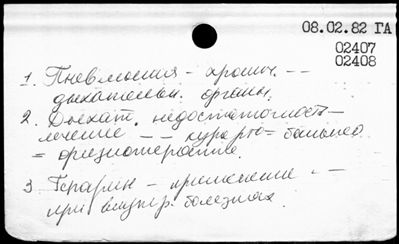 08.02.82 ГА
02407
02408
1. Пневмония - хронич. --
дыхательн. органы.
2. Дыхат. недостаточность-
лечение -- курорто= бальнео
= физиотерапия.
3 - применение --
при внутр. болезнях.